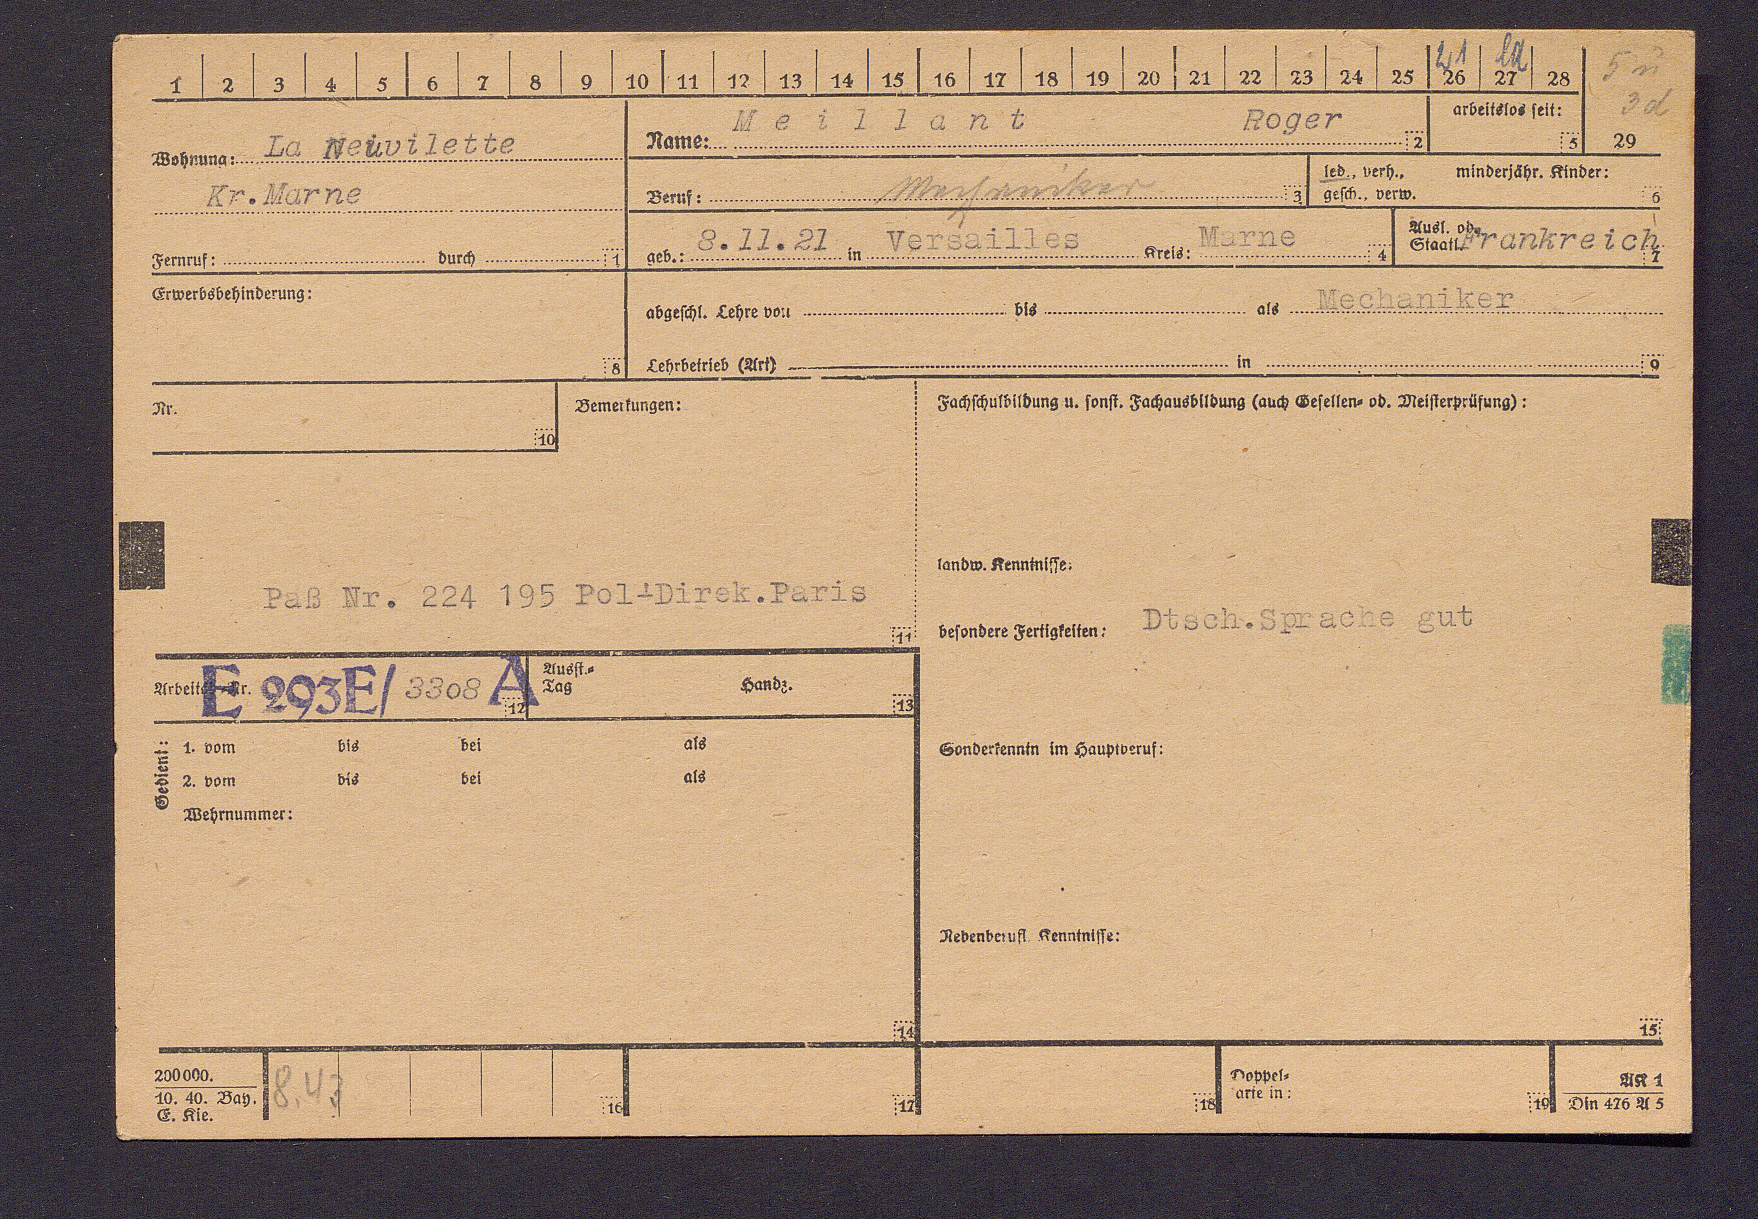 1 2 3 4 5 6 7 8 9 10 11 12 13 14 15 16 17 18 19 20 21 22 23 24 25 26 27 28
21
5
3d
29
Wohnung: La Neuvilette
Kr.Marne
Fernruf: durch 1
Name: Meillant Roger 2
arbeitslos seit: 5
Beruf: Mechaniker 3
led., verh., minderjähr. Kinder:
gesch., verw. 6
geb.: 8.11.21 in Versailles Kreis: Marne 4
Ausl. od.
Staatl. Frankreich
7
Erwerbsbehinderung:
8
abgeschl. Lehre von bis als Mechaniker
Lehrbetrieb (Art) in 9
Nr.
10
Bemerkungen:
Paß Nr. 224 195 Pol-Direk.Paris
11
Fachschulbildung u. sonst. Fachausbildung (auch Gesellen- od. Meisterprüfung):
landw. Kenntnisse:
besondere Fertigkeiten: Dtsch.Sprache gut
Sonderkenntn im Hauptberuf:
Nebenberufl Kenntnisse:
15
E 293E/ 3308 A
12
Ausst.-
Tag
Handz.
13
Gedient:
1. vom bis bei als
2. vom bis bei als
Wehrnummer:
14
200000.
10. 40. Bay.
E. Kie.
8.43
16
17
18
Doppel-
arte in:
19
AK 1
Din 476 A 5